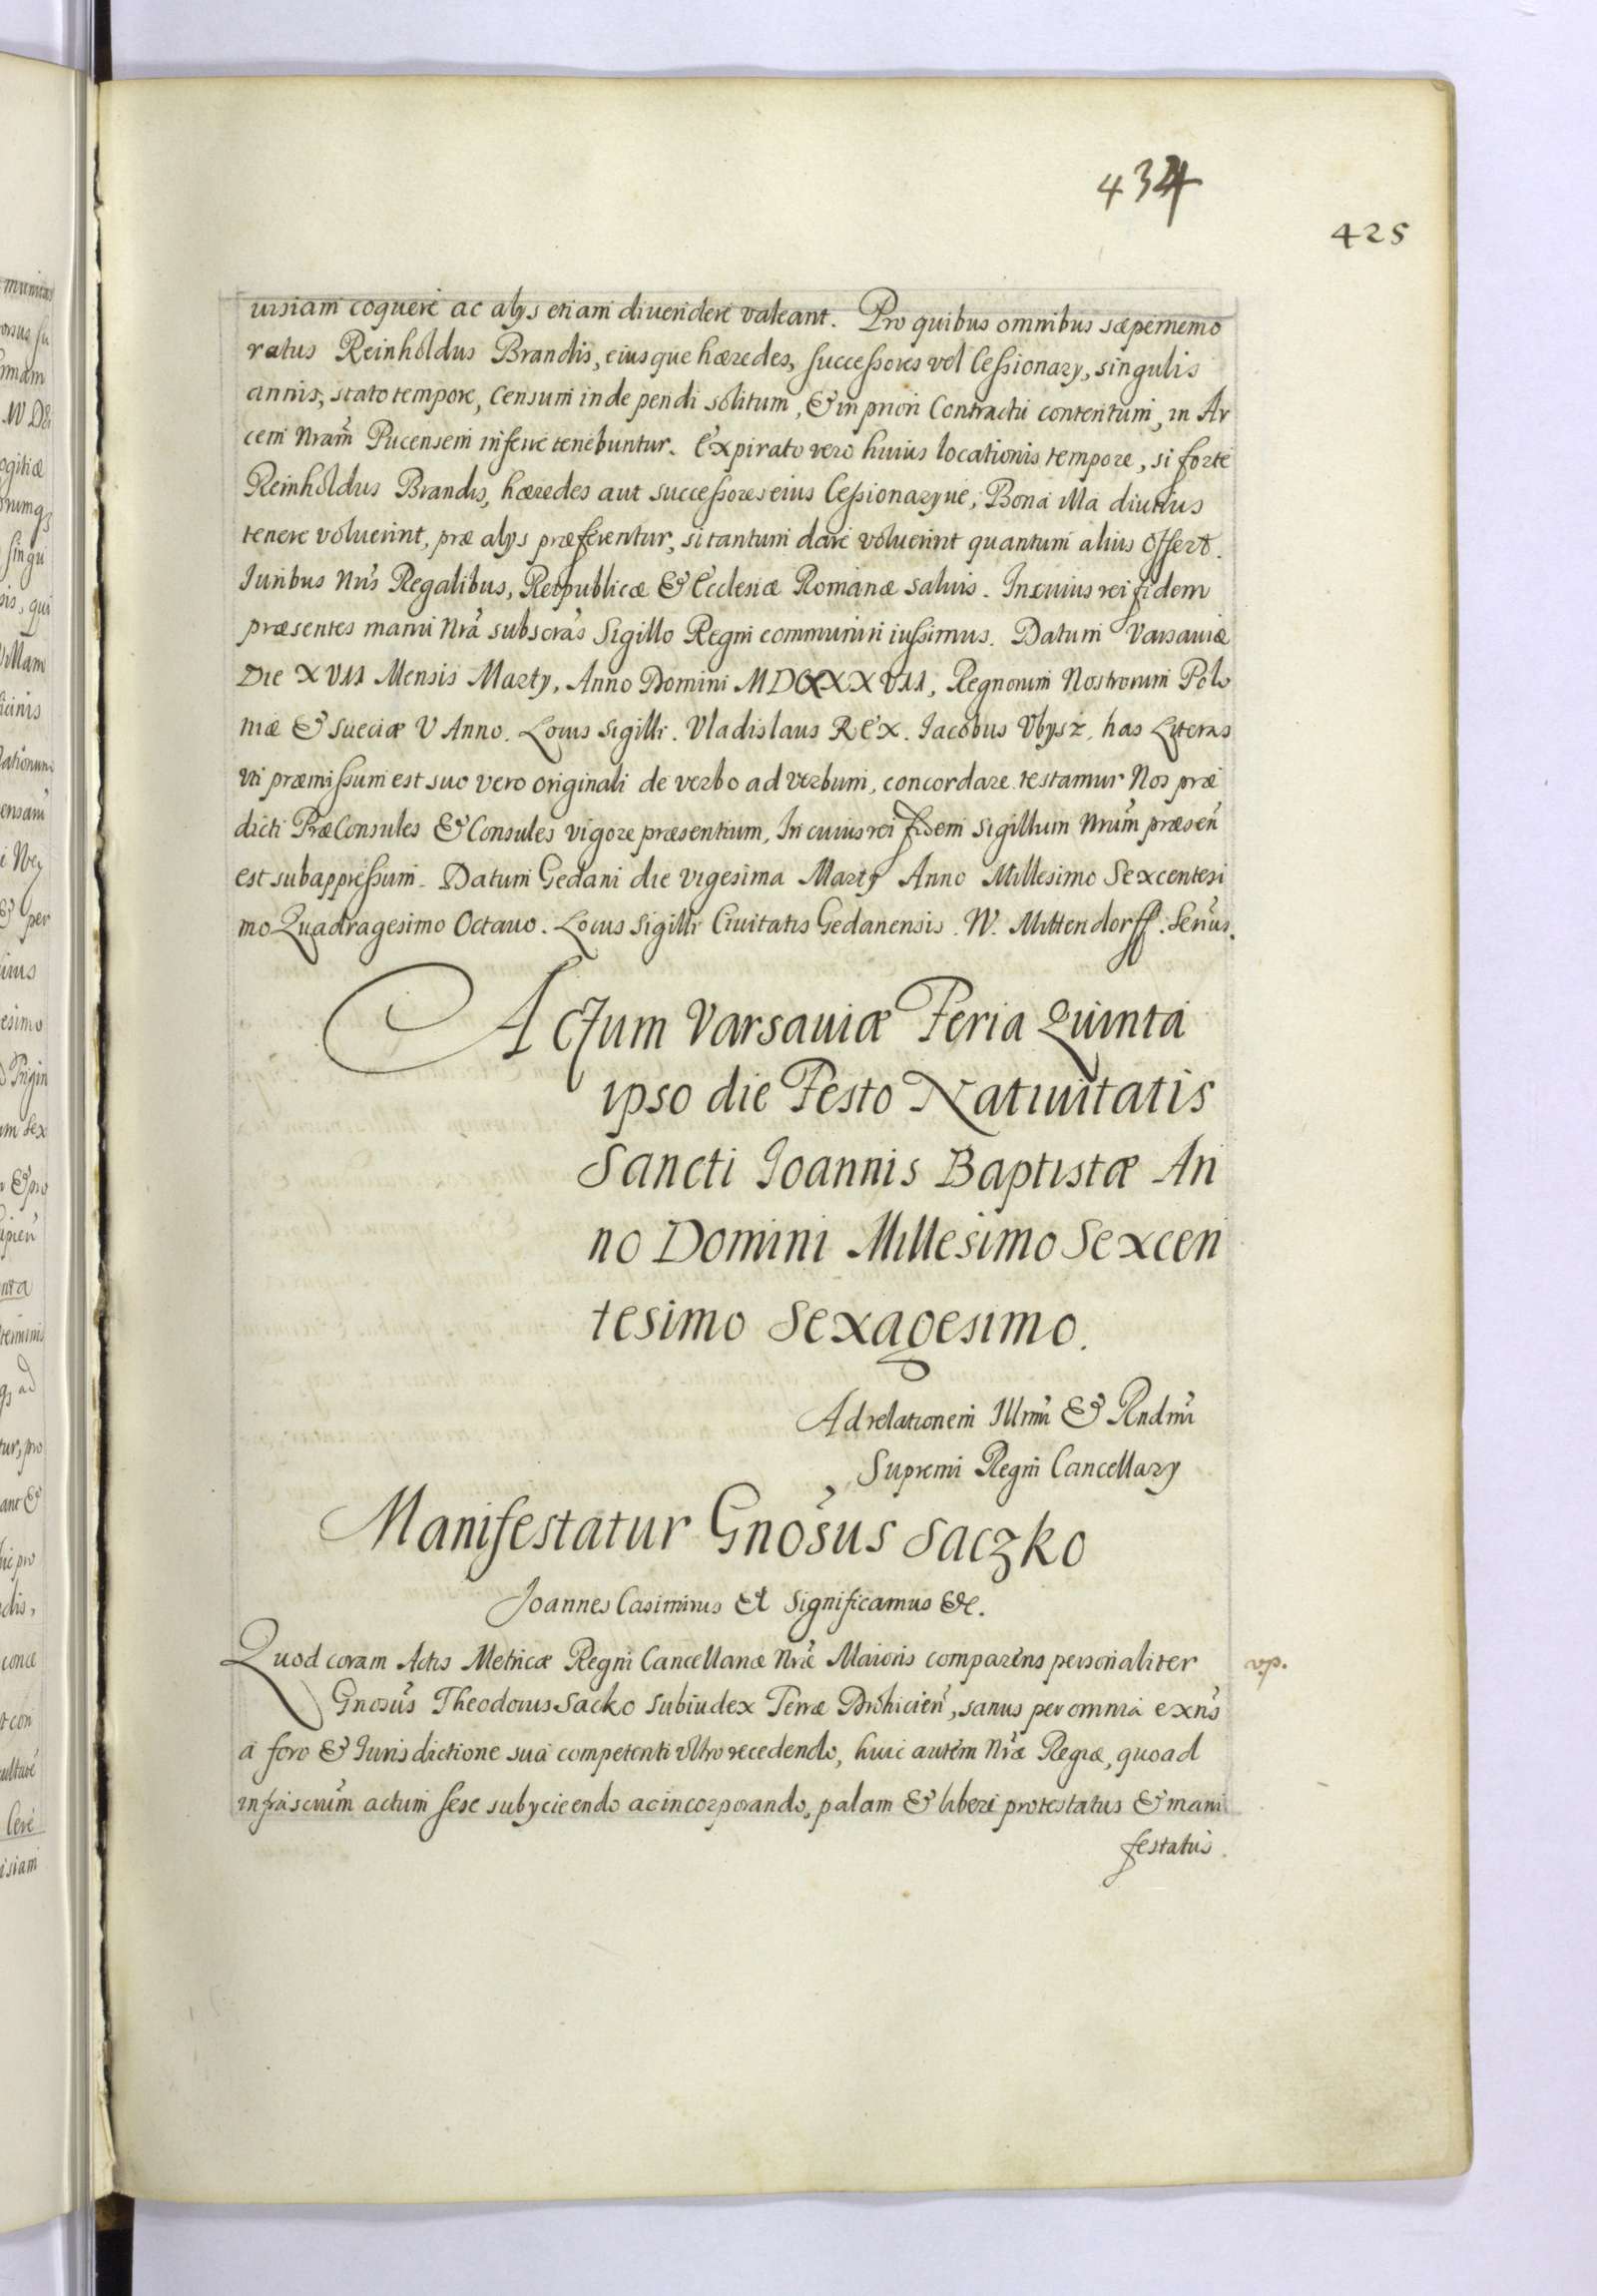 434
425
uisiam coquere ac alys etiam diuendere valeant. Pro quibus omnibus sæpememo
ratus Reinholdus Brandis, eiusque hæredes, successores vel Cessionary, singulis
annis, stato tempore, Censum inde pendi solitum, & in priori Contractu contentum, in Ar
cem Nram̃ Pucensem inferre tenebuntur. Expirato vero huius locationis tempore, si forte
Reinholdus Brandis, hæredes aut successores eius Cessionaryue, Bona illa diutius
tenere voluerint, præ alys præferentur, si tantum dare voluerint quantum alius offert.
Iuribus Nris̃ Regalibus, Reipublicæ & Ecclesiæ Romanæ saluis. In cuius rei fidem
præsentes manu Nrã subscras̃ Sigillo Regni communiri iussimus. Datum Varsauiæ
Die XVII Mensis Marty, Anno Domini MDCXXXVII, Regnorum Nostrorum Polo
niæ & Sueciæ V Anno. Locus Sigilli. Vladislaus REX. Iacobus Vbysz, has Literas
vti præmissum est suo vero originali de verbo ad verbum, concordare testamur Nos præ
dicti PræConsules & Consules vigore præsentium, In cuius rei fidem Sigillum Nrum̃ præsen̄
est subappressum. Datum Gedani die vigesima Marty Anno Millesimo Sexcentesi
mo Quadragesimo Octauo. Locus Sigilli Ciuitatis Gedanensis. W. Mittendorff. Serius̃.
Actum Varsauiæ Feria Quinta
ipso die Festo Natiuitatis
Sancti Ioannis Baptistæ An
no Domini Millesimo Sexcen
tesimo Sexagesimo.
Ad relationem Illrmi & Rndmi
Supremi Regni Cancellary
Manifestatur Gnosus̃ Saczko
Joannes Casimirus &t Significamus &c.
Quod coram Actis Metricæ Regni Cancellariæ Nræ̃ Maioris comparens personaliter
vp.
Gnosus̃ Theodorus Sacko Subiudex Terræ Drohicien̄, sanus per omnia exns̃
a foro & Iurisdictione sua competenti vltro recedendo, huic autem Nræ̃ Regiæ, quoad
infrascrum̃ actum sese subyciendo ac incorporando, palam & libere protestatus & mani
festatus.